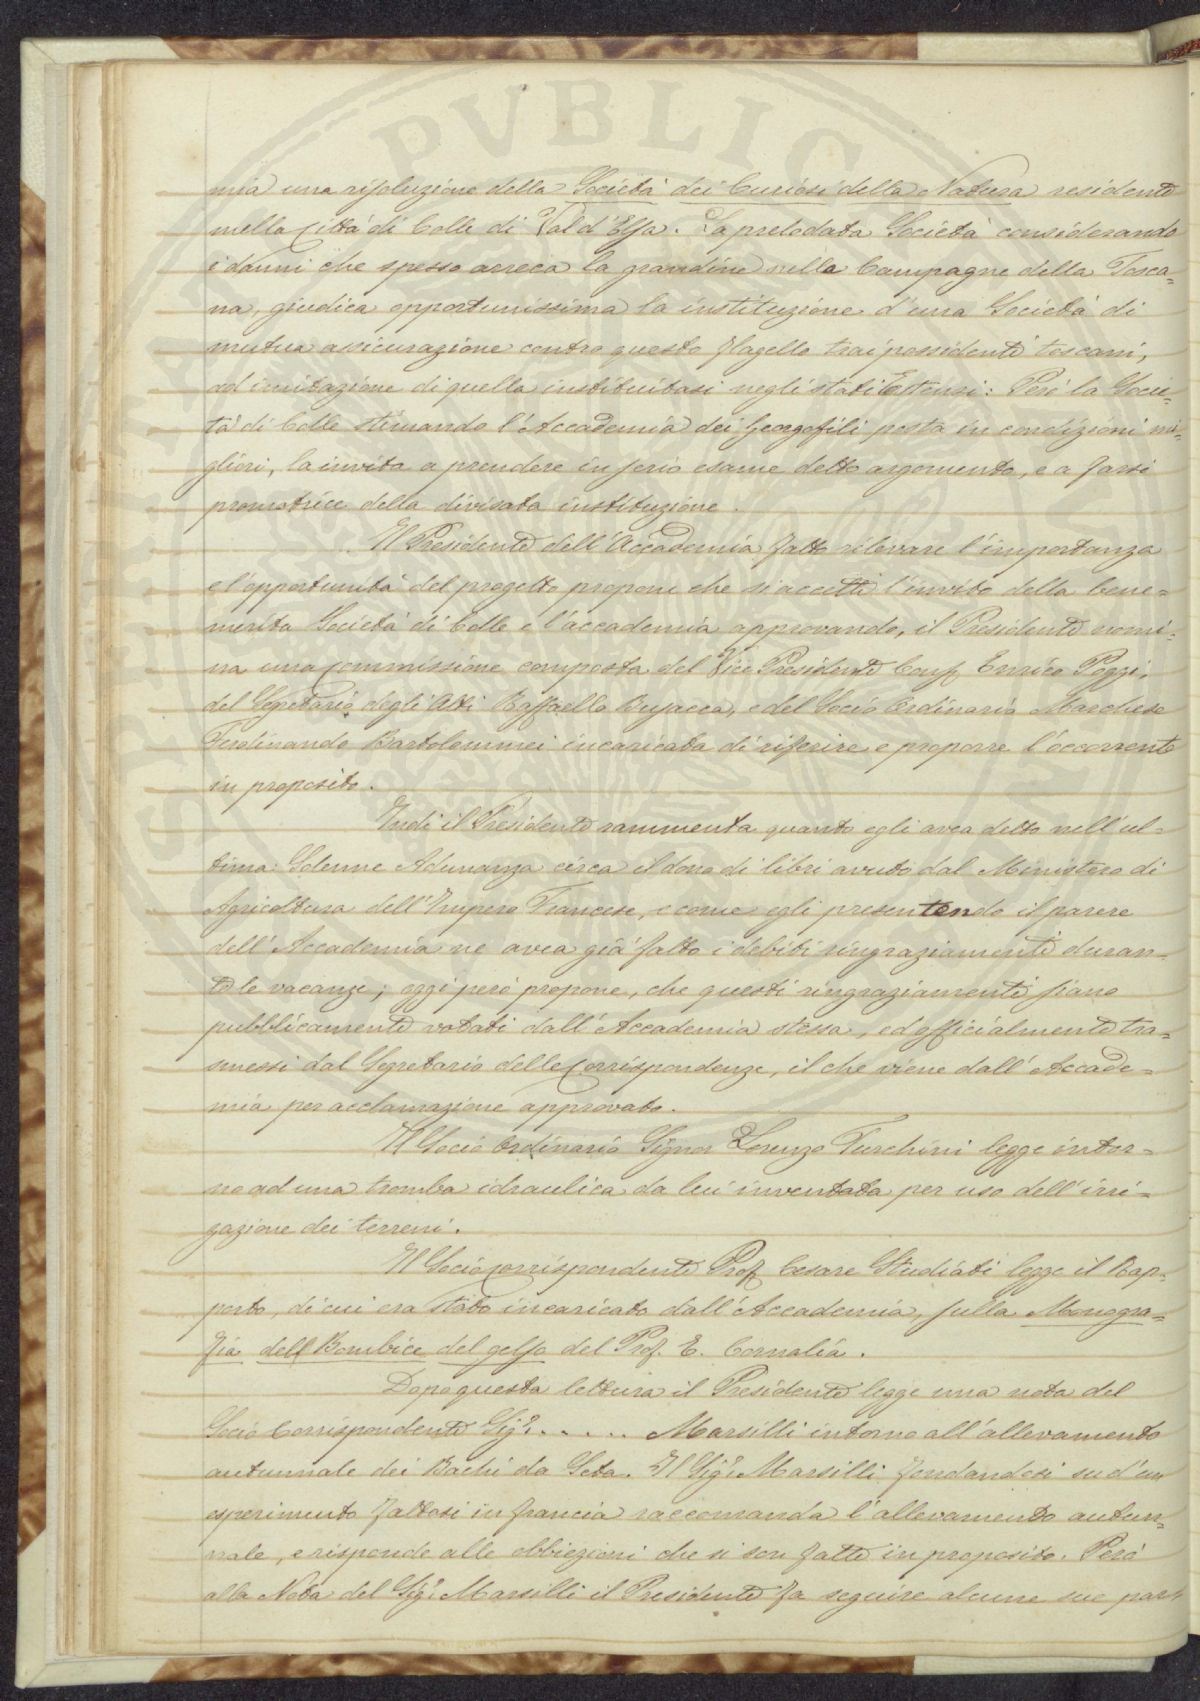 mia una risoluzione della Società dei Curiosi della Natura residente
nella Città di Colle di Val d'Elsa. La prelodata Società considerando
i danni che spesso arreca la grandine nelle Campagne della Tosca=
na, giudica opportunissima la instituzione d'una Società di
mutua assicurazione contro questo flagello trai possidenti toscani,
ad imitazione di quella instituitasi negli stati Estensi: Però la Socie=
tà di Colle stimando l'Accademia dei Georgofili posta in condizioni mi=
gliori, la invita a prendere in serio esame detto argomento, e a farsi
promotrice della divisata instituzione.
Il Presidente dell'Accademia fatto rilevare l'importanza
e l'opportunità del progetto propone che si accetti l'invito della bene=
merita Società di Colle e l'accademia approvando, il Presidente nomi=
na una commissione composta del Vice Presidente Conf Enrico Poggi,
del Segretario degli Atti Raffaello Busacca, e del Socio Ordinario Marchese
Ferdinando Bartolommei incaricata di riferire e proporre l'occorrente
in proposito.
Indi il Presidente rammenta quanto egli avea detto nell'ul=
tima Solenne Adunanza circa il dono di libri avuto dal Ministero di
Agricoltura dell'Impero Francese, e come egli presentendo il parere
dell'Accademia ne avea già fatto i debiti ringraziamenti duran=
te le vacanze; oggi però propone, che questi ringraziamenti siano
pubblicamente votati dall'Accademia stessa, ed officialmente tra=
smessi dal Segretario delle Corrispondenze, il che viene dall'Accade=
mia per acclamazione approvato.
Il Socio Ordinario Signor Lorenzo Turchini legge intor=
no ad una tromba idraulica da lui inventata per uso dell'irri=
gazione dei terreni.
Il Socio Corrispondente Prof Cesare Studiati legge il Rap=
porto, di cui era stato incaricato dall'Accademia, sulla Monogra=
fia dell Bombice del gelso del Prof. E. Cornalia.
Dopo questa lettura il Presidente legge una nota del
Socio Corrispondente Sigr. . . . . . Marsilli intorno all'allevamento
autunnale dei Bachi da Seta. Il Sigr. Marsilli fondandosi su d'un
esperimento fattosi in francia raccomanda l'allevamento autun=
nale, e risponde alle obbiezioni che si son fatte in proposito. Però
alla Nota del Sigr. Marsilli il Presidente fa seguire alcune sue par=
PVBLIC